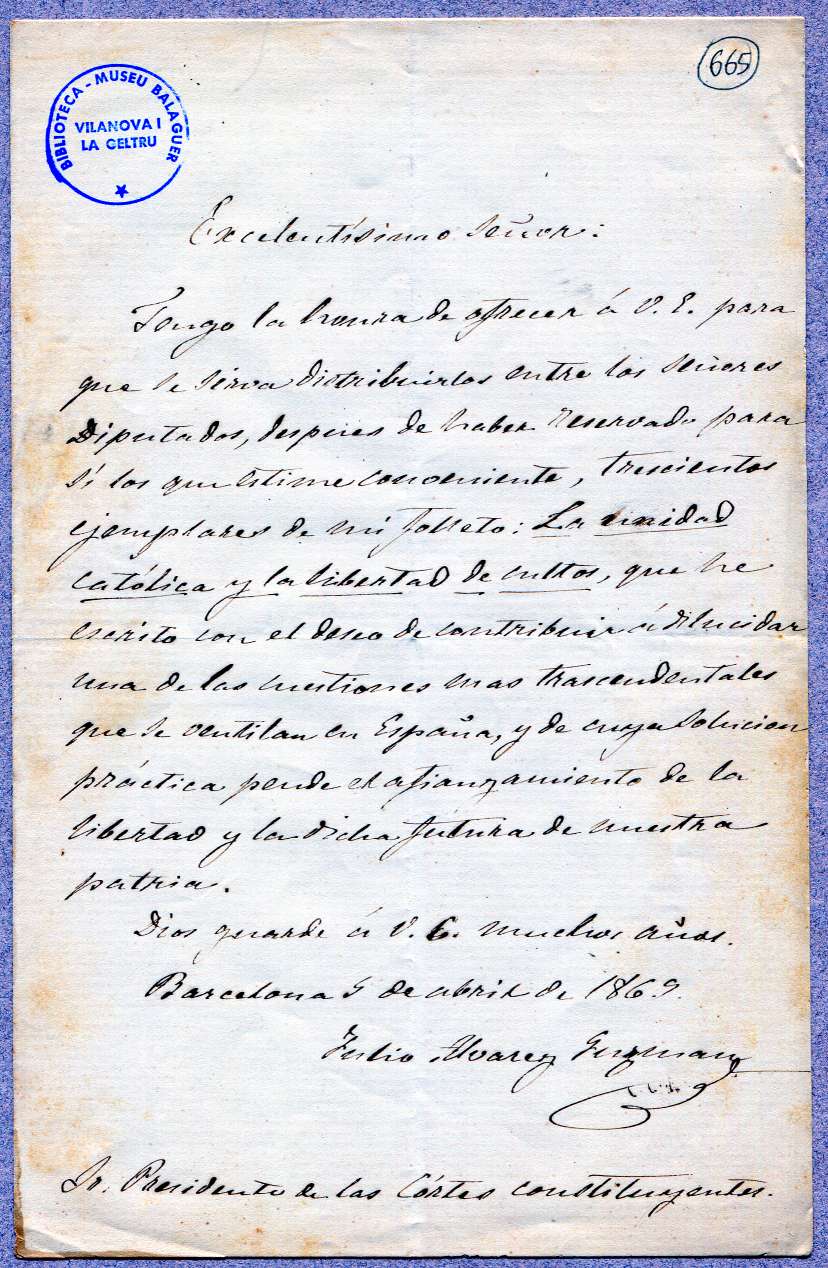 665
BIBLIOTECA - MUSEU BALAGUER
VILANOVA I
LA GELTRU
Excelentísimo Señor:
Tengo la honra de ofrecer á V. E. para
que se sirva distribuirlos entre los señores
Diputados, despues de haber reservado para
sí los que estime conveniente, trescientos
ejemplares de mi folleto: La unidad
católica y la libertad de cultos, que he
escrito con el deseo de contribuir á dilucidar
una de las cuestiones mas trascendentales
que se ventilan en España, y de cuya solucion
práctica pende el afianzamiento de la
libertad y la dicha futura de nuestra
patria.
Dios guarde á V. E. muchos años.
Barcelona 5 de abril de 1869.
Julio Alvarez Guzman
Sr. Presidente de las Córtes constituyentes.